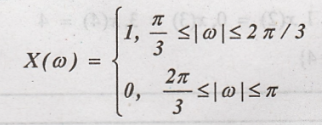 X(ω) = { 1, π/3 ≤|ω|≤ 2 π / 3
0, 2π/3 ≤|ω|≤ π